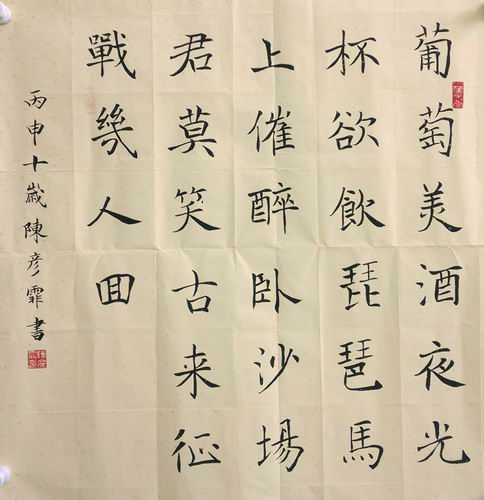 葡萄美酒夜光
杯欲飲琵琶馬
上催醉臥沙場
君莫笑古来征
戰幾人囬
丙申十歲陳彦霏書